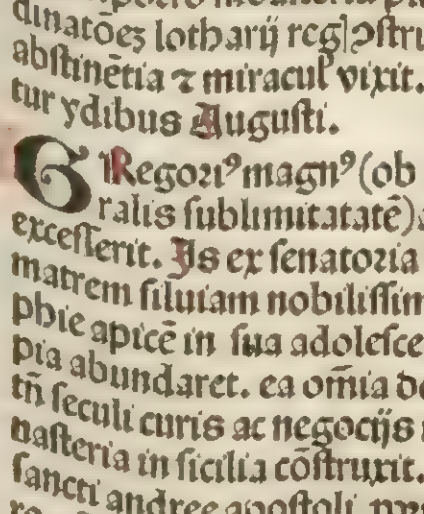 dinatões lotharij reg ꝯstru
abstinētia ⁊ miracul vixit.
tur ydibus Augusti.
GRegoriꝰ magnꝰ (ob
ralis sublimitatatē)
excesserit. Is ex senatoria
matrem siluiam nobilissim
phie apicē in sua adolesce
pia abundaret. ea om̄ia de
tn̄ seculi curis ac negocijs
nasteria in sicilia cōstruxit.
sancti andree apostoli